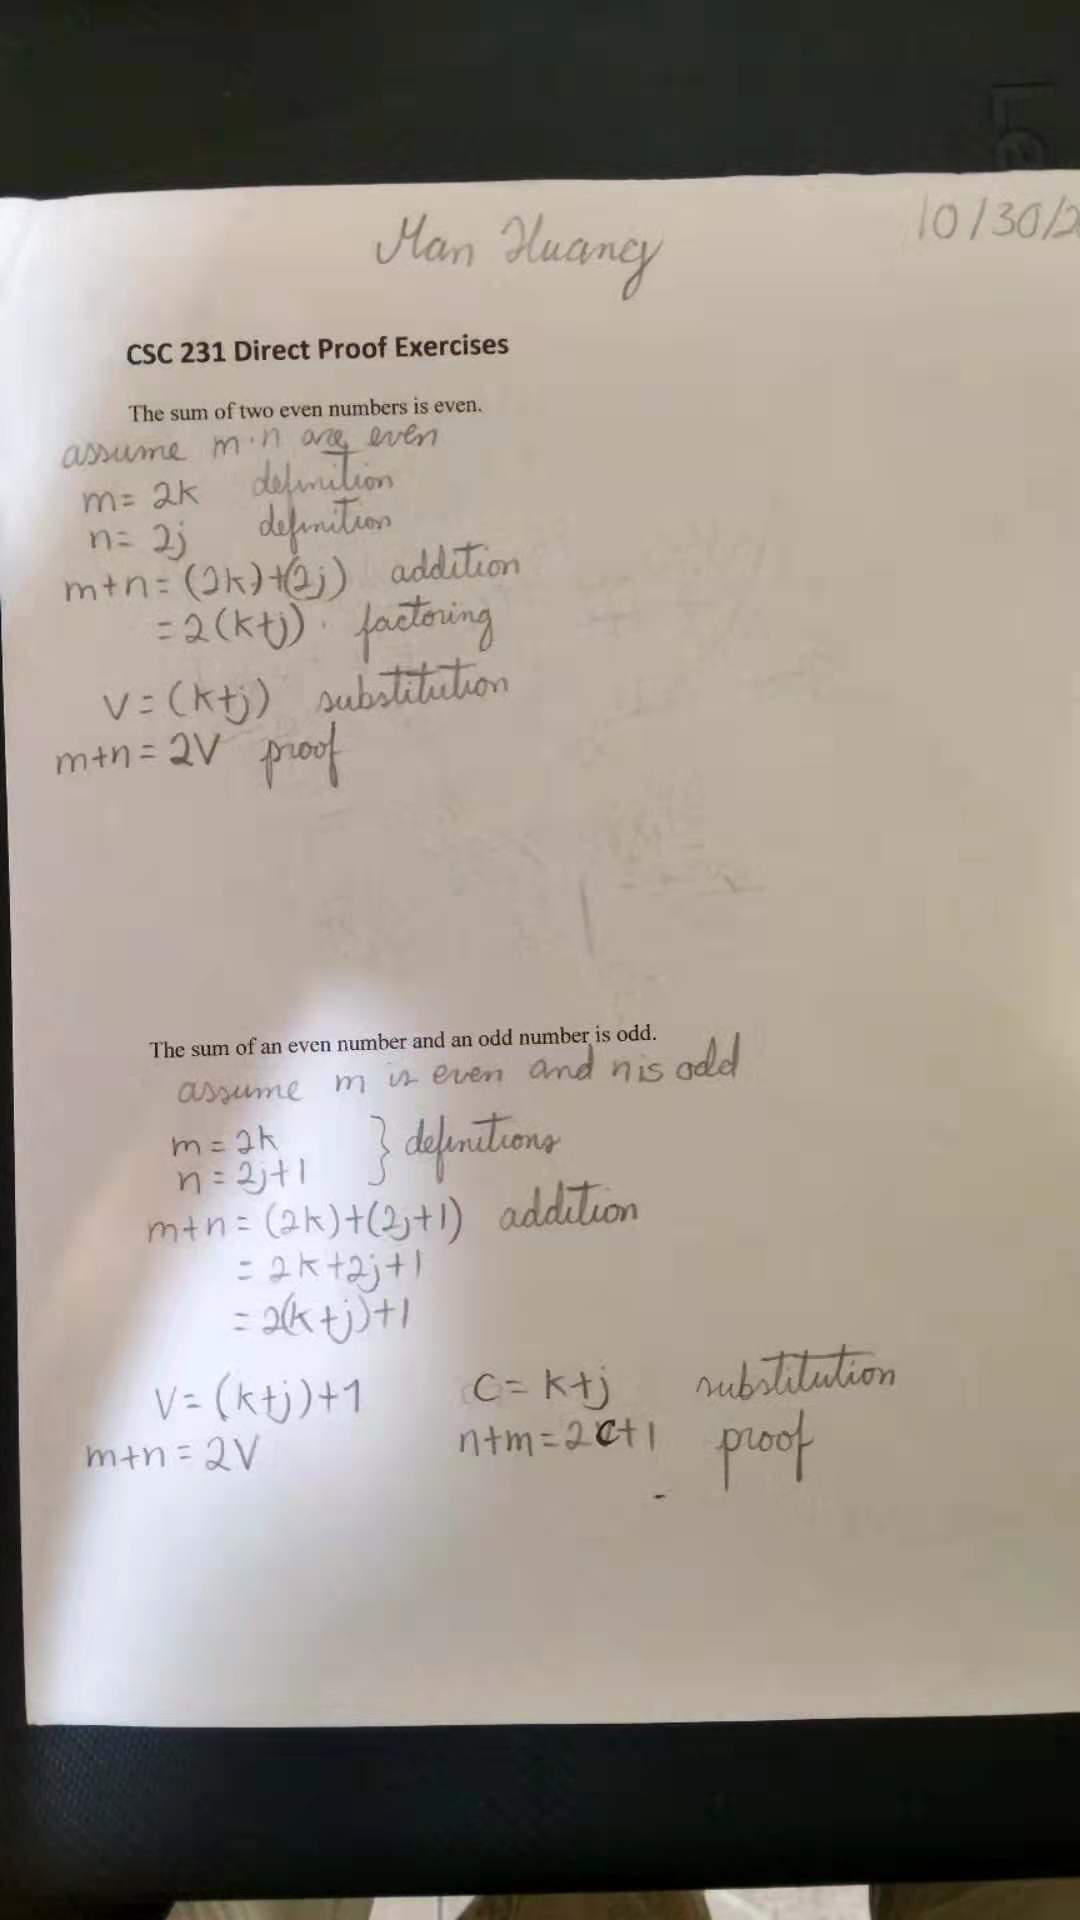 Le
Man Huang 10/30/2
CSC 231 Direct Proof Exercises
The sum of two even numbers is even.
assume m·n are even
m = 2k definition
n = 2j definition
m+n = (2k)+(2j) addition
= 2(k+j). factoring
V = (k+j) substitution
m+n = 2V proof
The sum of an even number and an odd number is odd.
assume m is even and n is odd
m = 2k } definitions
n = 2j+1
m+n = (2k)+(2j+1) addition
= 2k+2j+1
= 2(k+j)+1
V = (k+j)+1 C = k+j substitution
m+n = 2V n+m = 2C+1 proof